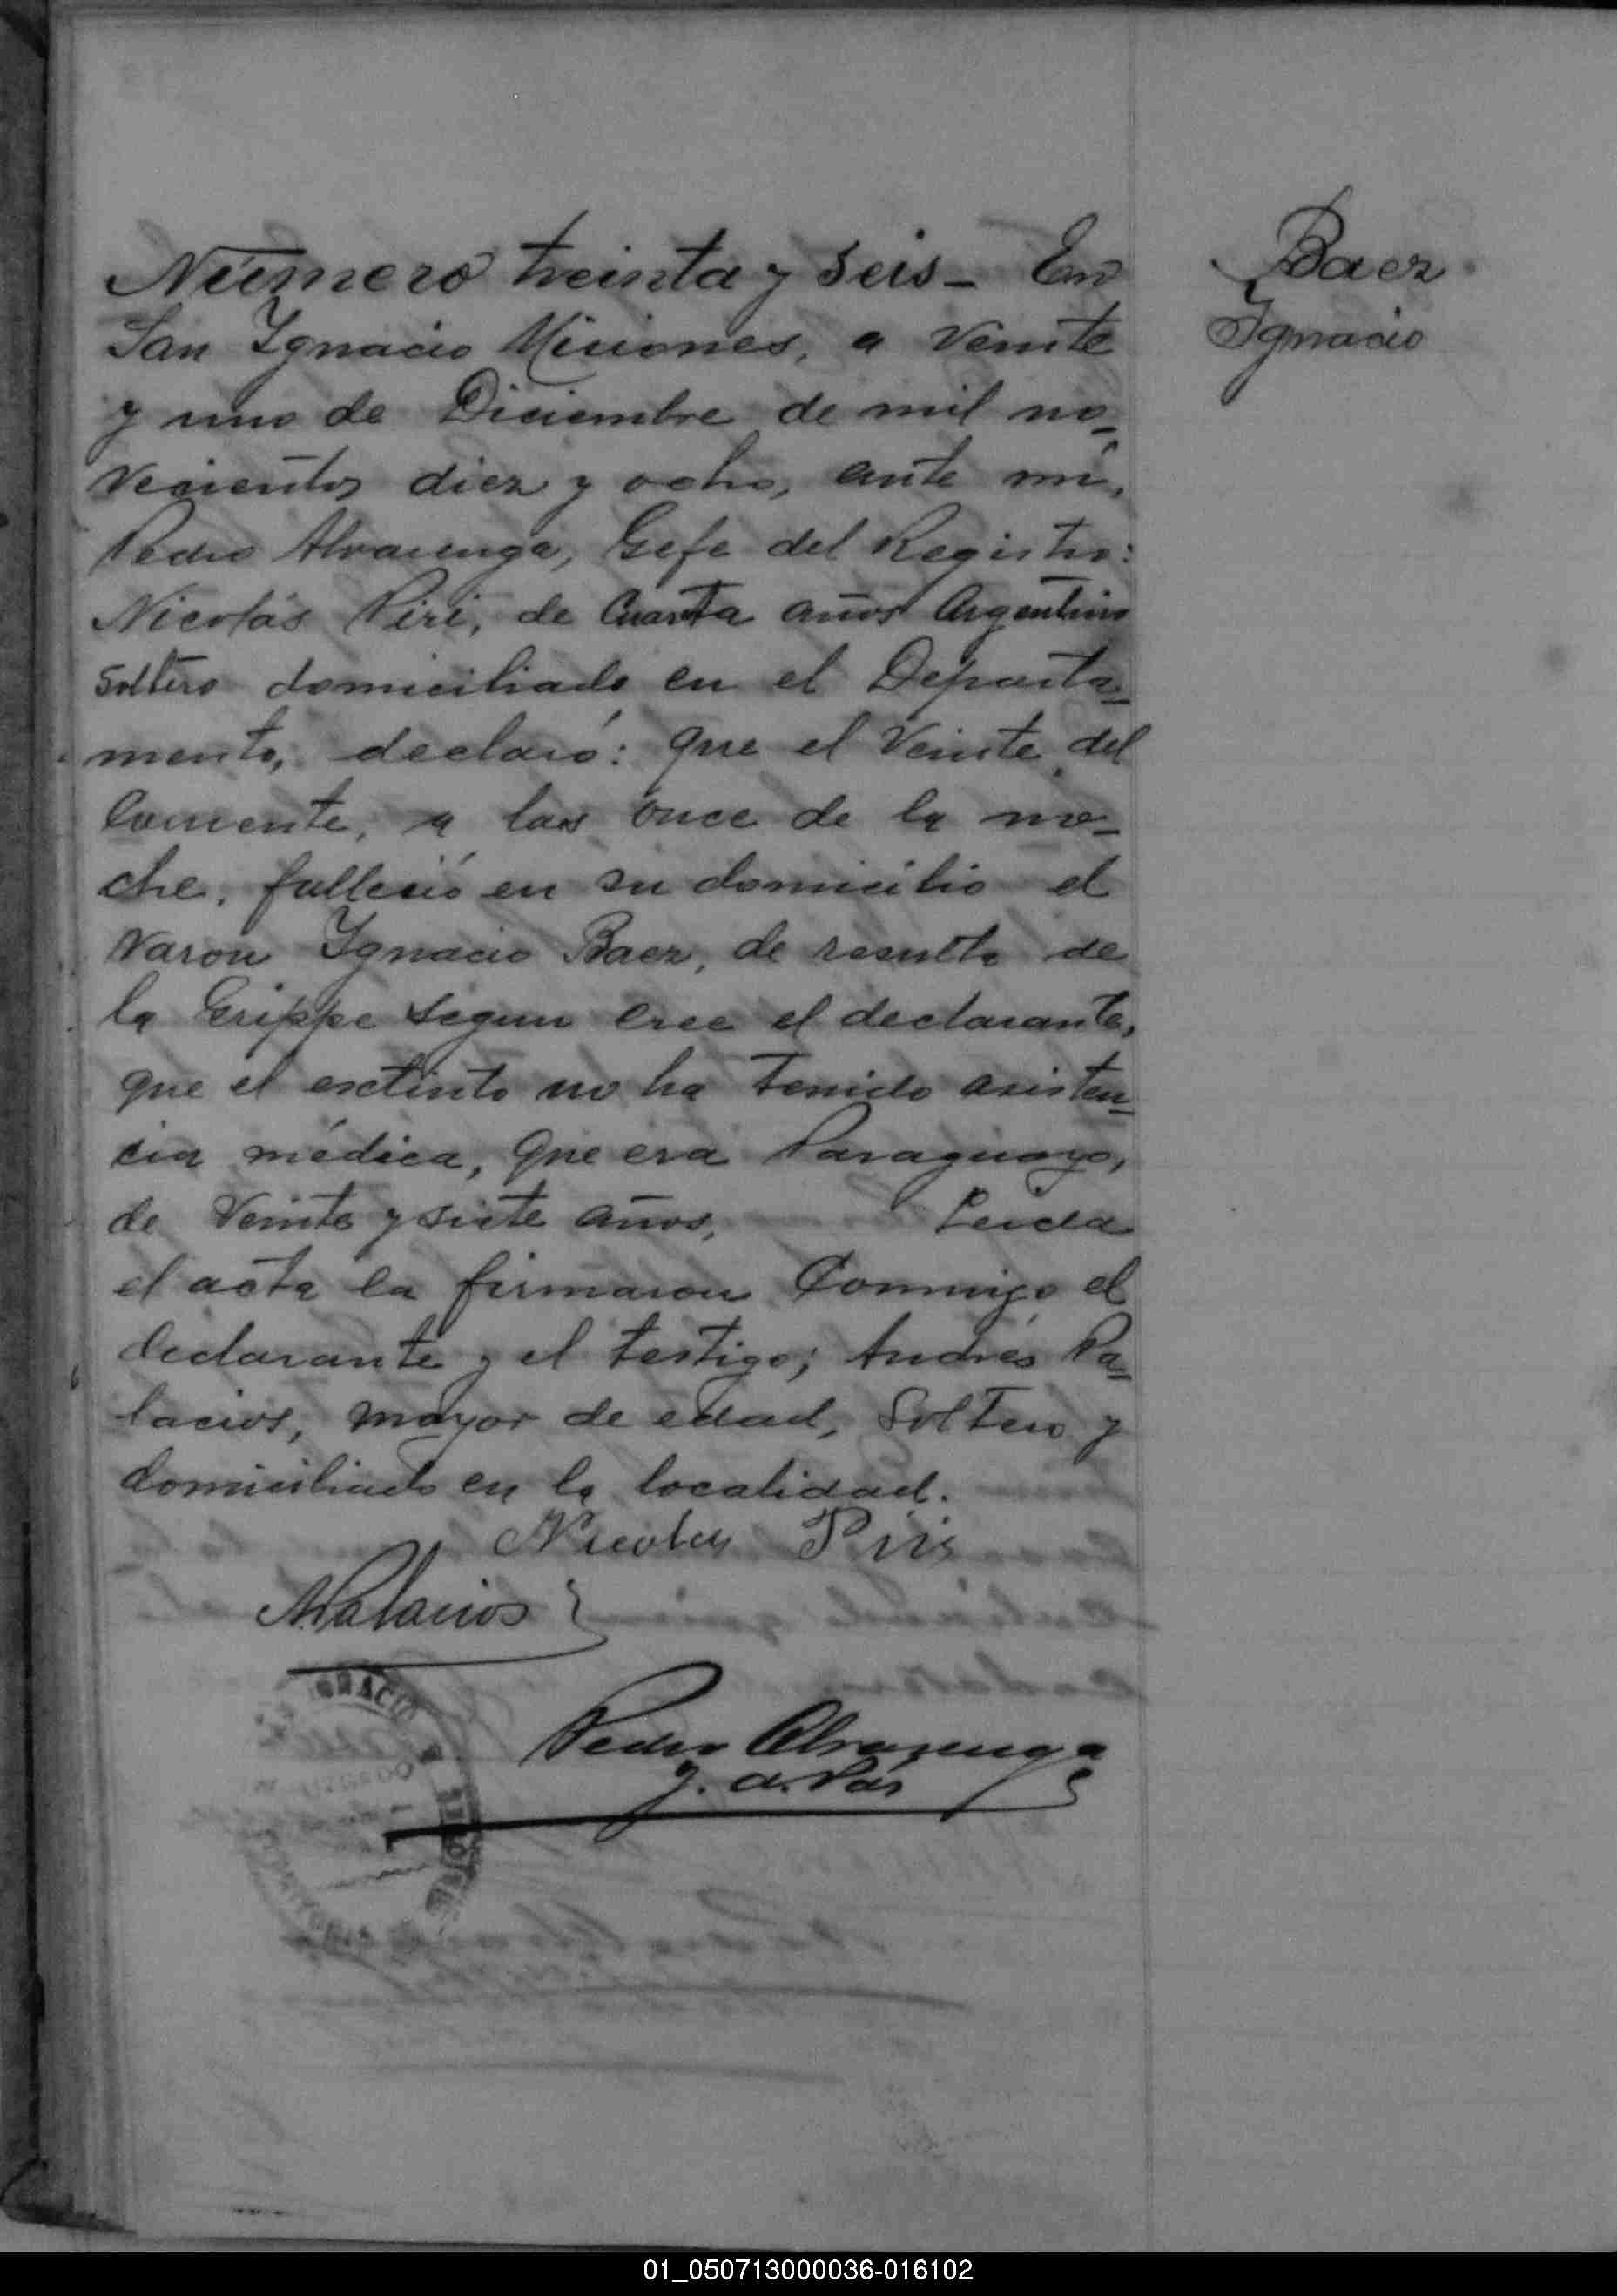 Número treinta y seis - En
San Ignacio Misiones, a veinte
y uno de Diciembre de mil no-
vecientos diez y ocho, ante mí,
Pedro Alvarenga, Gefe del Registro:
Nicolás Piri, de Cuarta años Argentino
soltero domiciliado en el Departa-
mento, declaró: que el Veinte del
Corriente, a las once de la no-
che, fallesió en su domicilio el
Varon Ignacio Baez, de resulta de
la Grippe segun cree el declarante,
que el esctinto no ha tenido asisten-
cia médica, que era Paraguayo,
de Veinte y siete años, Leida
el acta la firmaron Conmigo el
declarante y el testigo; Andrés Pa-
lacios, mayor de edad, Soltero y
domiciliado en la localidad.
Nicolas Piris
A. Palacios
Pedro Alvarenga
J. de Paz
Baez
Ignacio
01_050713000036-016102